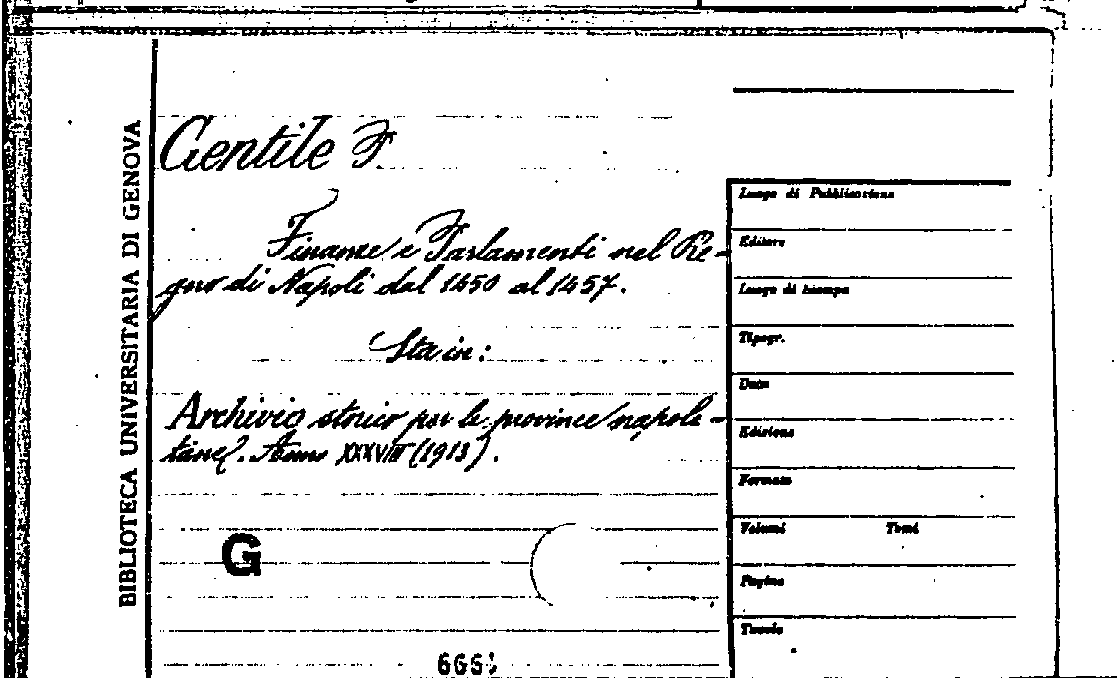 BIBLIOTECA UNIVERSITARIA DI GENOVA
Gentile F
Finanze e Parlamenti nel Re-
gno di Napoli dal 1450 al 1457.
Sta in:
Archivio storico per le province napole-
tane. Anno XXXVIII (1913).
G
Luogo di Pubblicazione
Editore
Luogo di stampa
Tipogr.
Data
Edizione
Formato
Volumi Tomi
Pagine
Tavole